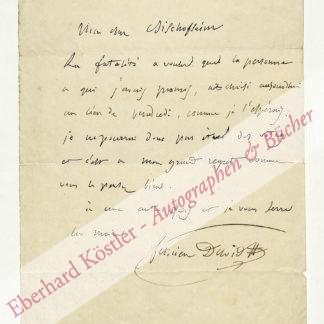 Mon cher Bischofsheim
La fatalité a voulu que la personne
a qui j'avais promis, ait choisi aujourd'hui
au lieu de Vendredi, comme je l'espérais
je donc pas
et c'est a mon grand regret comme
vous le pensez bien.
à une autre fois et je vous serre
la main
Félicien David
Eberhard Köstler - Autographen & Bücher